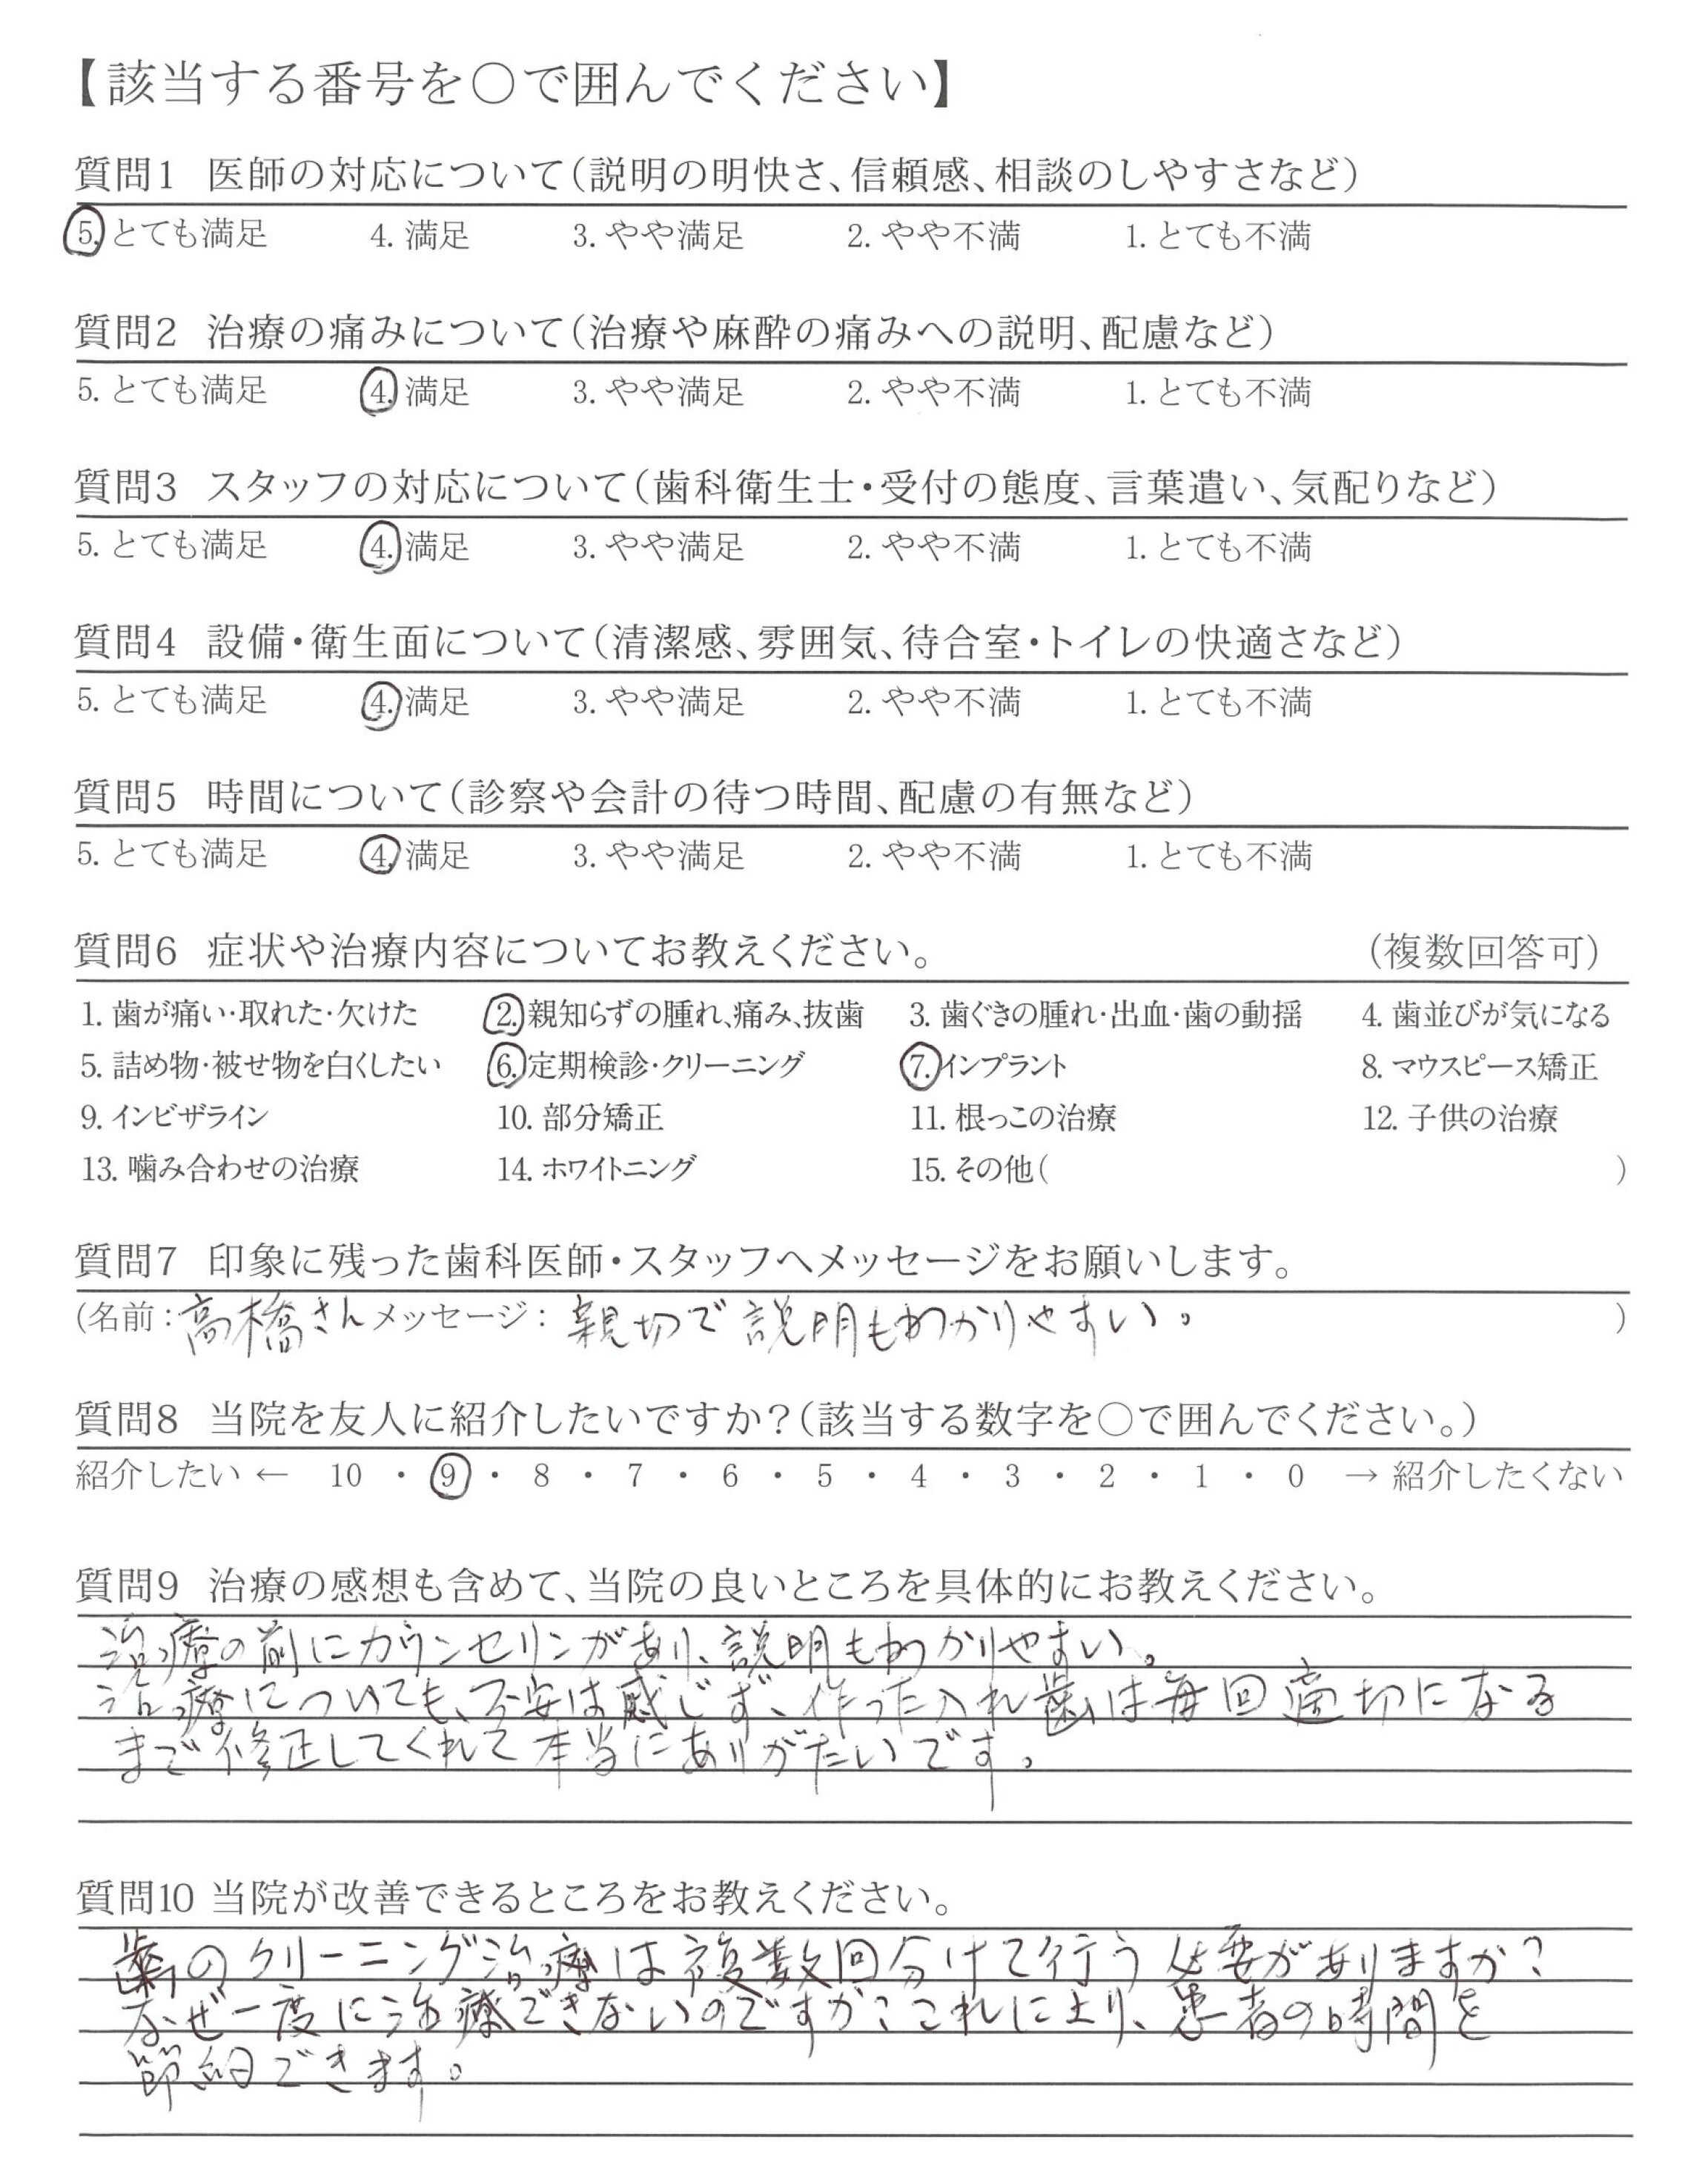 【該当する番号を○で囲んでください】
質問1 医師の対応について(説明の明快さ、信頼感、相談のしやすさなど)
5. とても満足 4. 満足 3. やや満足 2. やや不満 1. とても不満
質問2 治療の痛みについて(治療や麻酔の痛みへの説明、配慮など)
5. とても満足 4. 満足 3. やや満足 2. やや不満 1. とても不満
質問3 スタッフの対応について(歯科衛生士・受付の態度、言葉遣い、気配りなど)
5. とても満足 4. 満足 3. やや満足 2. やや不満 1. とても不満
質問4 設備・衛生面について(清潔感、雰囲気、待合室・トイレの快適さなど)
5. とても満足 4. 満足 3. やや満足 2. やや不満 1. とても不満
質問5 時間について(診察や会計の待つ時間、配慮の有無など)
5. とても満足 4. 満足 3. やや満足 2. やや不満 1. とても不満
質問6 症状や治療内容についてお教えください。 (複数回答可)
1. 歯が痛い・取れた・欠けた 2. 親知らずの腫れ、痛み、抜歯 3. 歯ぐきの腫れ・出血・歯の動揺 4. 歯並びが気になる
5. 詰め物・被せ物を白くしたい 6. 定期検診・クリーニング 7. インプラント 8. マウスピース矯正
9. インビザライン 10. 部分矯正 11. 根っこの治療 12. 子供の治療
13. 噛み合わせの治療 14. ホワイトニング 15. その他( )
質問7 印象に残った歯科医師・スタッフへメッセージをお願いします。
(名前：高橋さん メッセージ：親切で説明もわかりやすい。 )
質問8 当院を友人に紹介したいですか？(該当する数字を○で囲んでください。)
紹介したい ← 10 ・ 9 ・ 8 ・ 7 ・ 6 ・ 5 ・ 4 ・ 3 ・ 2 ・ 1 ・ 0 → 紹介したくない
質問9 治療の感想も含めて、当院の良いところを具体的にお教えください。
治療の前にカウンセリンがあり、説明もわかりやすい。
治療についても、不安は感じず、作った入れ歯は毎回適切になる
まで修正してくれて本当にありがたいです。
質問10 当院が改善できるところをお教えください。
歯のクリーニング治療は複数回分けて行う必要がありますか？
なぜ一度に治療できないのですか？これにより、患者の時間を
節約できます。